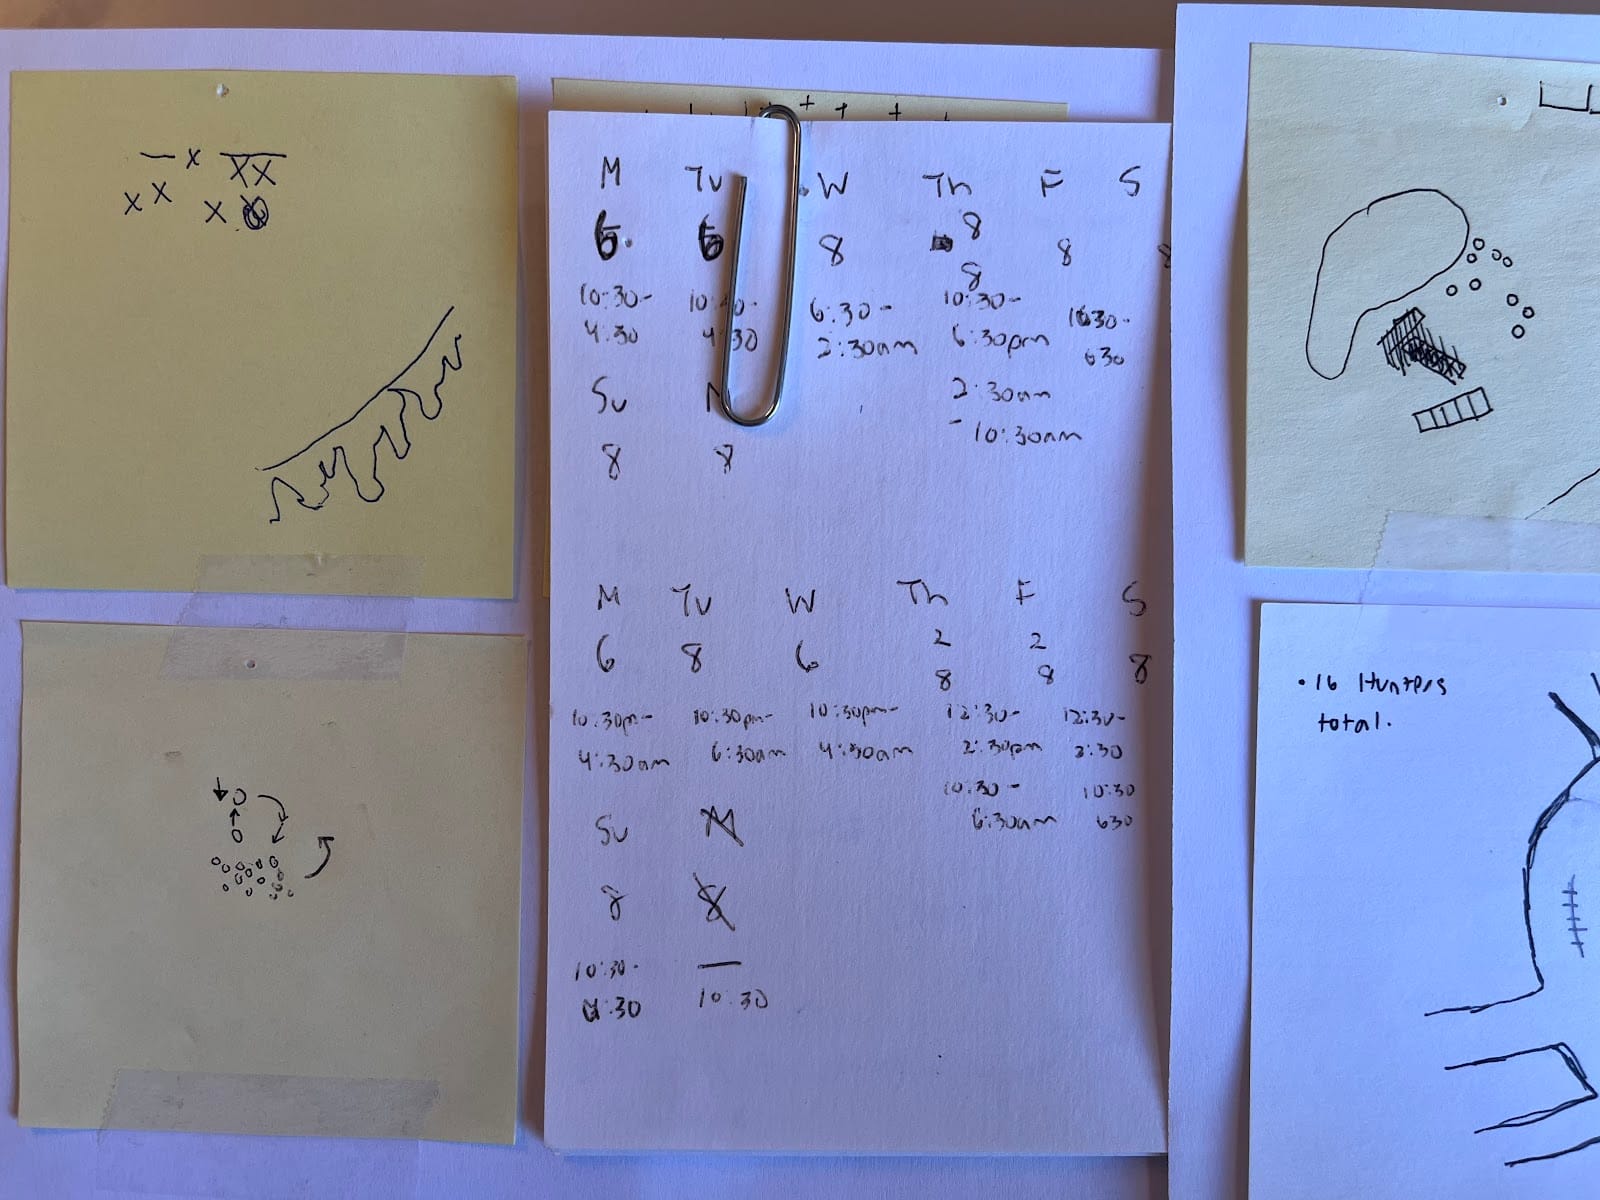 M Tu W Th F S
8
6 6 8 8 8
8
10:30- 10:30- 6:30- 10:30- 1030-
4:30 4:30 2:30am 6:30pm 630
Su M 2:30am
- 10:30am
8 8
M Tu W Th F S
2 2
6 8 6 8 8 8
10:30pm- 10:30pm- 10:30pm- 12:30- 12:30-
4:30am 6:30am 4:30am 2:30pm 2:30
10:30- 10:30
Su M 6:30am 630
8 8
10:30- —
:30 10:30
• 16 Hunters
total.
x
x x
x x x